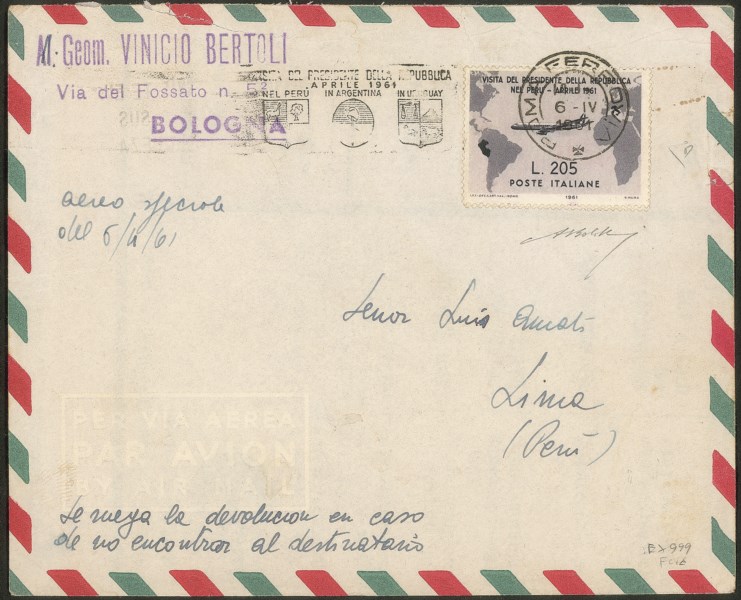 M. Geom. VINICIO BERTOLI
Via del Fossato n. 5²
BOLOGNA
VISITA DEL PRESIDENTE DELLA REPUBBLICA
APRILE 1961
NEL PERÚ IN ARGENTINA IN URUGUAY
VISITA DEL PRESIDENTE DELLA REPUBBLICA
NEL PERU - APRILE 1961
ROMA FERROVIA
6-IV
1961
L. 205
POSTE ITALIANE
1961
aereo speciale
del 6/4/61
Señor Luis
Lima
(Perú)
PER VIA AEREA
PAR AVION
BY AIR MAIL
Se ruega la devolucion en caso
de no encontrar al destinatario